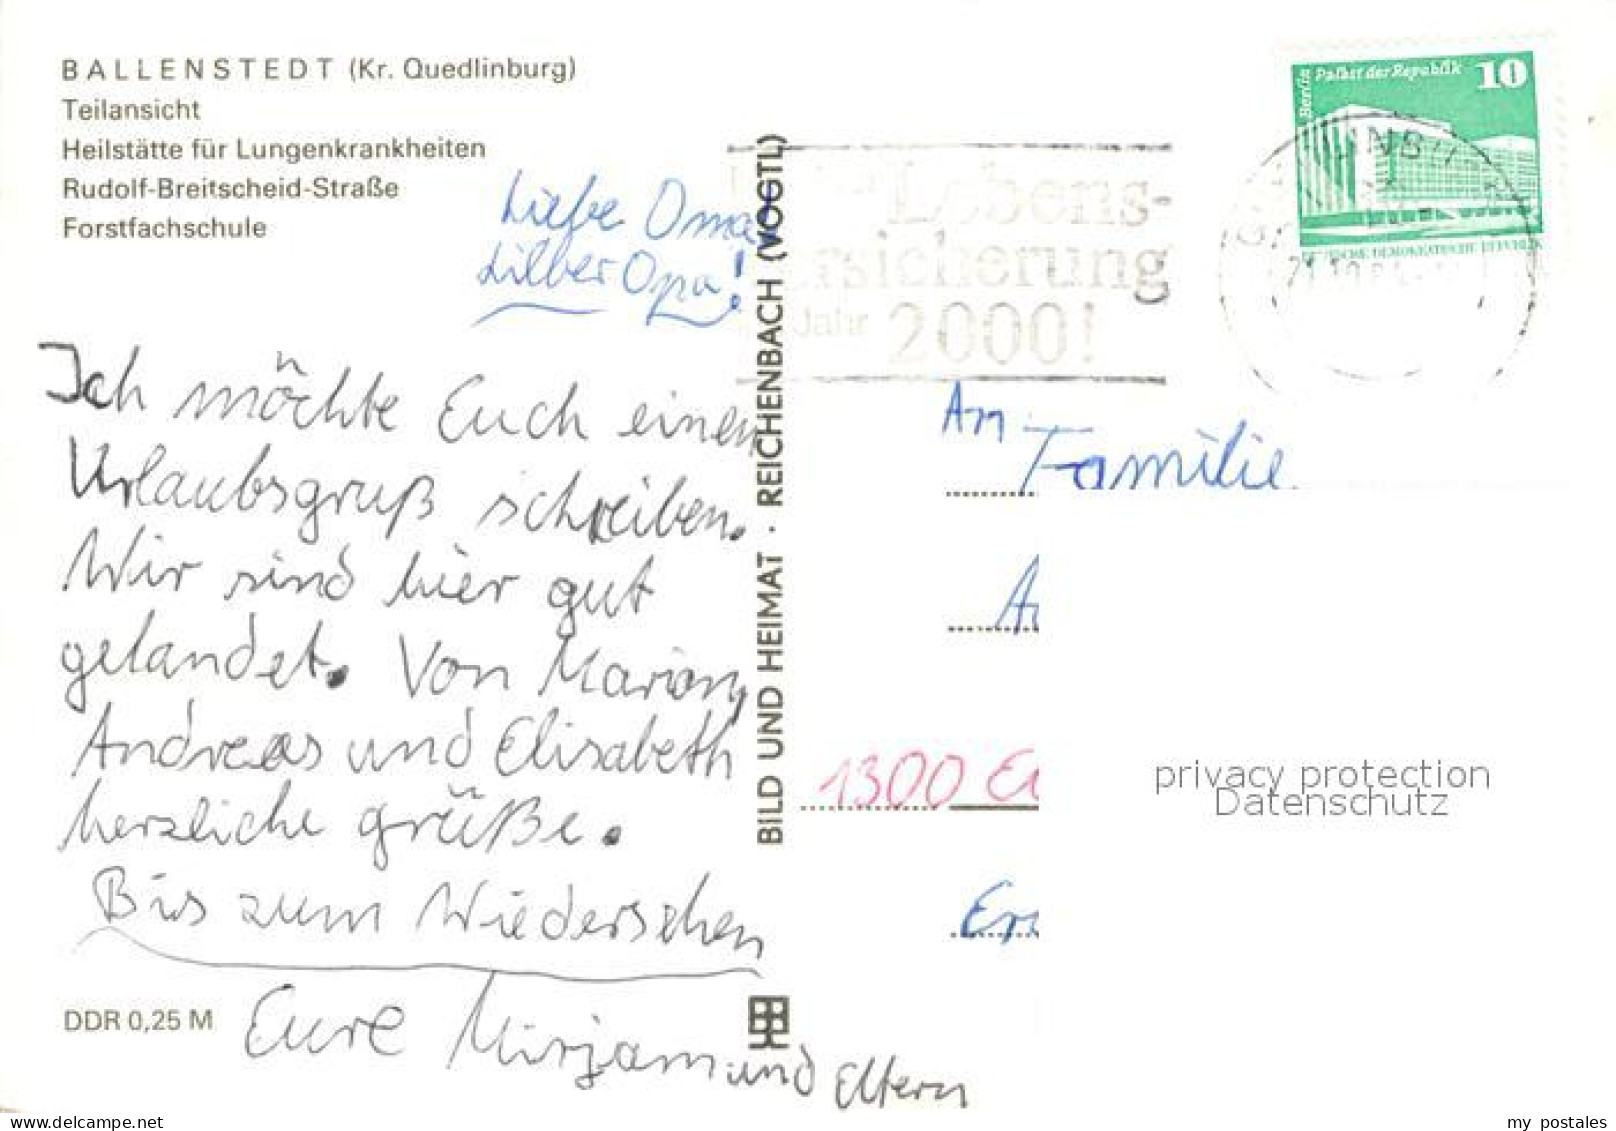 BALLENSTEDT (Kr. Quedlinburg)
Teilansicht
Heilstätte für Lungenkrankheiten
Rudolf-Breitscheid-Straße
Forstfachschule
Liebe Oma,
Lieber Opa!
Ich möchte Euch einen
Urlaubsgruß schreiben.
Wir sind hier gut
gelandet. Von Marion,
Andreas und Elisabeth
herzliche grüße.
Bis zum Wiedersehen
Eure Mirjam und Eltern
DDR 0,25 M
BILD UND HEIMAT · REICHENBACH (VOGTL)
Lebens-
Jahr 2000!
Berlin Palast der Republik 10
DEMOKRATISCHE REPUBLIK
An
Familie
1300
privacy protection
Datenschutz
www.delcampe.net
my_postales